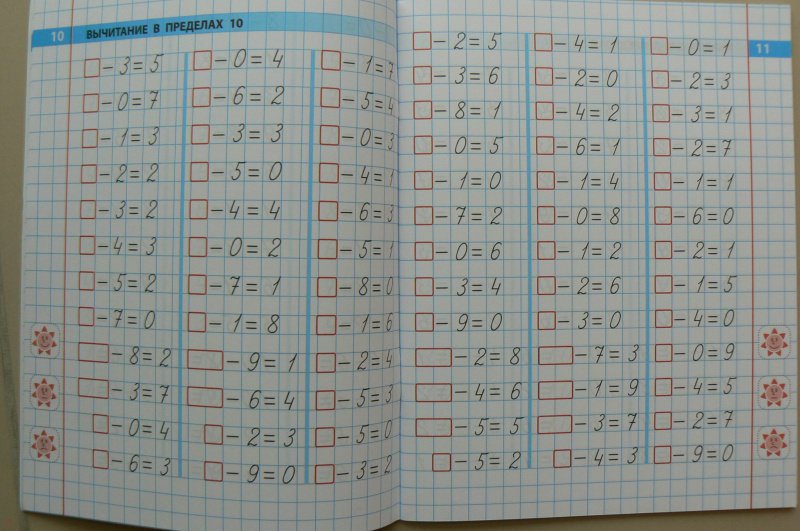 10 ВЫЧИТАНИЕ В ПРЕДЕЛАХ 10
□ - 3 = 5
□ - 0 = 7
□ - 1 = 3
□ - 2 = 2
□ - 3 = 2
□ - 4 = 3
□ - 5 = 2
□ - 7 = 0
□ - 8 = 2
□ - 3 = 7
□ - 0 = 4
□ - 6 = 3
□ - 0 = 4
□ - 6 = 2
□ - 3 = 3
□ - 5 = 0
□ - 4 = 4
□ - 0 = 2
□ - 7 = 1
□ - 1 = 8
□ - 9 = 1
□ - 6 = 4
□ - 2 = 3
□ - 9 = 0
□ - 1 = 7
□ - 5 = 4
□ - 0 = 3
□ - 4 = 1
□ - 6 = 3
□ - 5 = 1
□ - 8 = 0
□ - 1 = 6
□ - 2 = 4
□ - 5 = 3
□ - 5 = 0
□ - 3 = 2
11
□ - 2 = 5
□ - 3 = 6
□ - 8 = 1
□ - 0 = 5
□ - 1 = 0
□ - 7 = 2
□ - 0 = 6
□ - 3 = 4
□ - 9 = 0
□ - 2 = 8
□ - 4 = 6
□ - 5 = 5
□ - 5 = 2
□ - 4 = 1
□ - 2 = 0
□ - 4 = 2
□ - 6 = 1
□ - 1 = 4
□ - 0 = 8
□ - 1 = 2
□ - 2 = 6
□ - 3 = 0
□ - 7 = 3
□ - 1 = 9
□ - 3 = 7
□ - 4 = 3
□ - 0 = 1
□ - 2 = 3
□ - 3 = 1
□ - 2 = 7
□ - 1 = 1
□ - 6 = 0
□ - 2 = 1
□ - 1 = 5
□ - 4 = 0
□ - 0 = 9
□ - 4 = 5
□ - 2 = 7
□ - 9 = 0